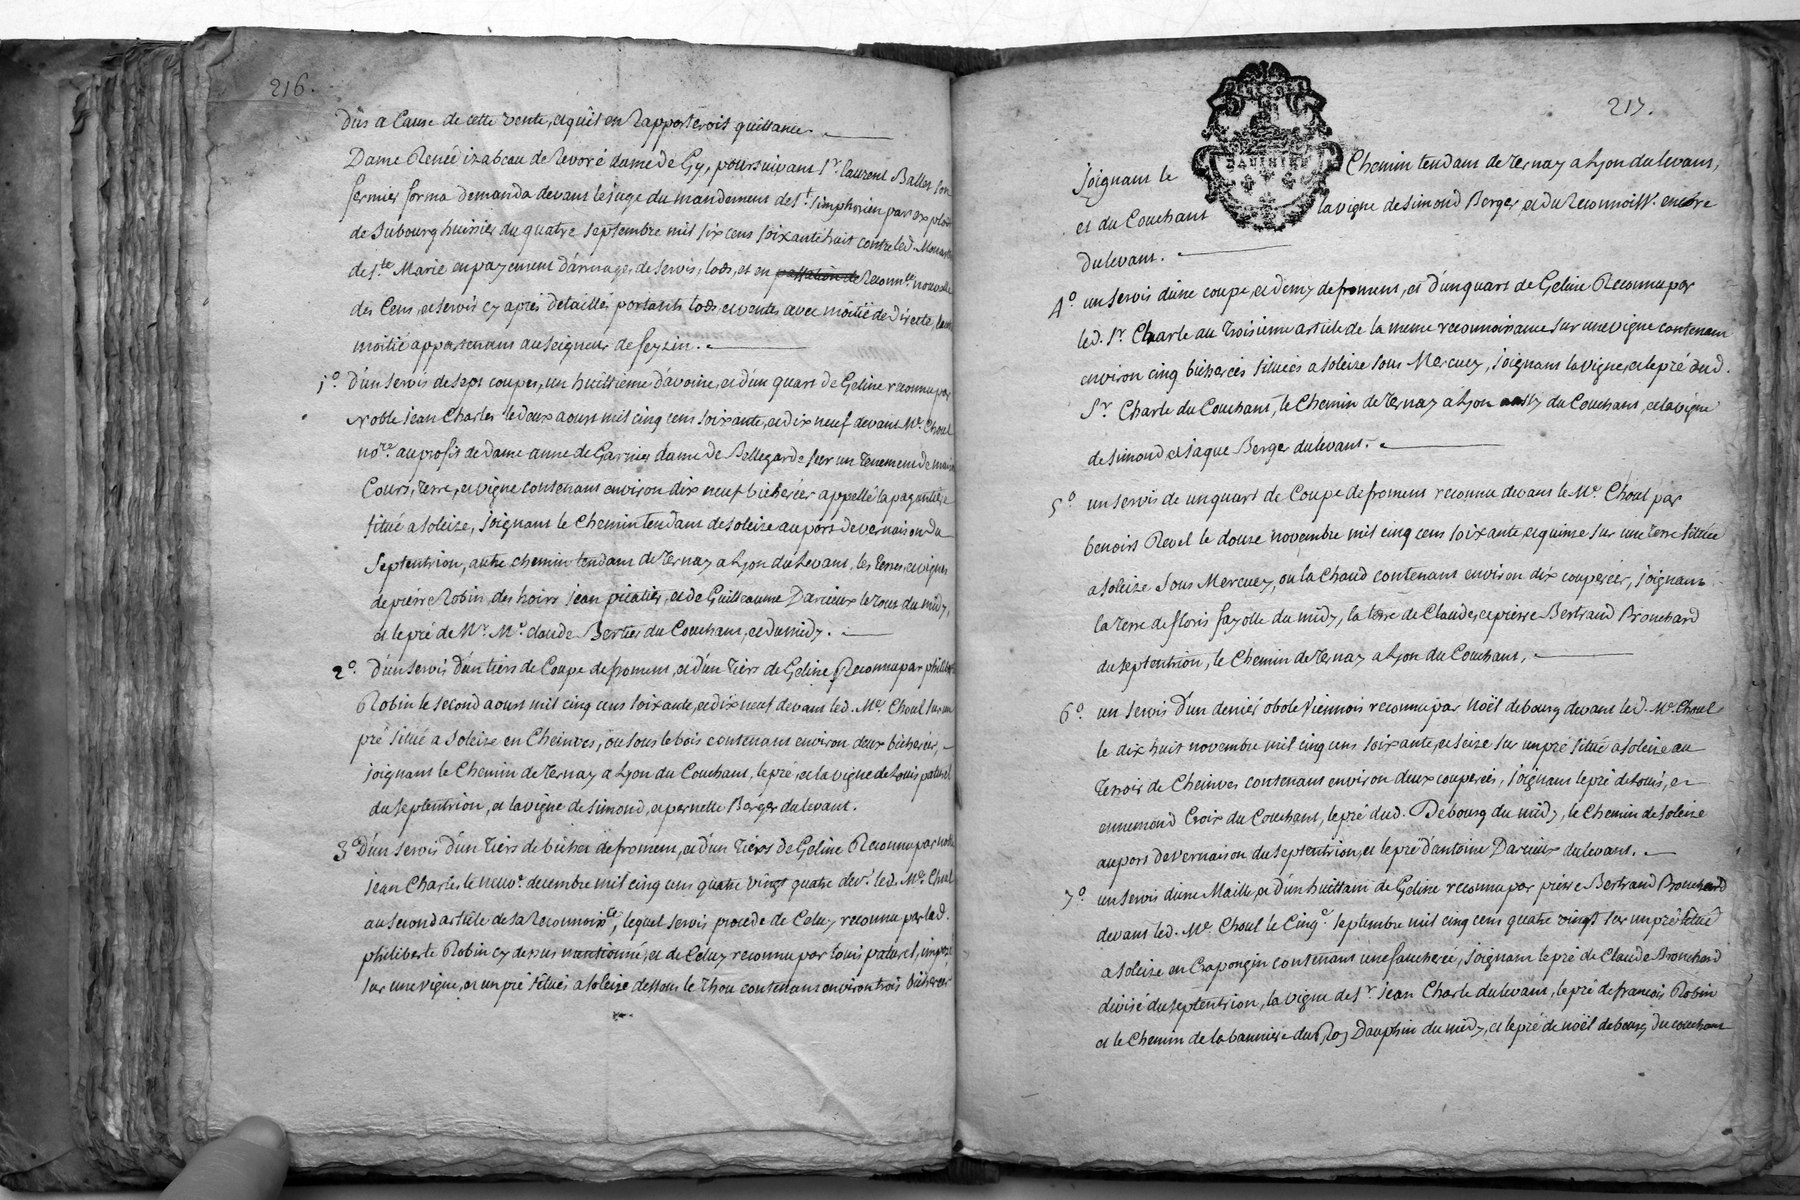 216.
dûs a Cause de cette vente, et quil en Rapporteroit quittance.
Dame Renée izabeau de Revoré dame de Gy, poursuivant Sr. laurent Ballet son
fermier forma demanda devant le juge du mandement de St. Simphorien par exploit
de Subourg huissier du quatre septembre mil six cens soixante huit contre led.
de Ste. Marie en payement d'arrerages de servis, lods, et en passation de Reconn.ce nouvelle
des Cens, et servis cy après detaillés portants lods et ventes avec moitié de directe, l'autre
moitié appartenant au Seigneur de feyzin.
1o. d'un servis de sept coupes, un huittieme d'avoine, et d'un quart de Geline reconnu par
Noble jean Charles le deux aoust mil cinq cens soixante, et dix neuf devant Me. Choul
nore. au profit de dame anne de Garnier dame de Bellegarde sur un Tenement de maison
Cours, terre, et vigne contenant environ dix neuf bicherées appellé la paganiere
situé a soleize, joignant le Chemin tendant de soleize au port de vernaison du
septentrion, autre chemin tendant de Ternay a Lyon du Levant, les terres et vignes
de pierre Robin, des hoirs jean picatier, et de Guilleaume Darcieux le tout du midy,
et le pré de Mr. Me. claude Bertier du Couchant, et du midy.
2o. d'un servis d'un tiers de Coupe de froment, et d'un Tiers de Geline Reconnu par philiberte
Robin le second aoust mil cinq cens soixante, et dix neuf devant led. Me. Choul sur un
pré situé a soleize en Cheinves, ou sous le bois contenant environ deux bicherées,
joignant le Chemin de Ternay a Lyon du Couchant, le pré, et la vigne de Louis paturel
du septentrion, et la vigne de simond, et pernette Berger du levant.
3o. D'un servis d'un Tiers de bichet de froment, et d'un Tiers de Geline Reconnu par noble
jean Charles le neuve. decembre mil cinq cens quatre vingt quatre devt. led. Me. Choul
au second article de sa Reconnoixce, lequel servis procede de Celuy reconnu par lad.
philiberte Robin cy dessus mentionné, et de Celuy reconnu par louis paturel, imposé
sur une vigne, et un pré situés a soleize dessous le Thou contenant environ trois bicherées
217.
joignant le Chemin tendant de Ternay a Lyon du levant,
et du Couchant la vigne de simond Berger, et du Reconnoisst. encore
du levant.
4o. un servis d'une coupe, et demy de froment, et d'un quart de Geline Reconnu par
led. Sr. Charle au troisieme article de la meme reconnoissance sur une vigne contenant
environ cinq bicherées situées a soleize sous Mercuey, joignant la vigne, et le pré dud.
Sr. Charle du Couchant, le Chemin de Ternay a Lyon aussy du Couchant, et la vigne
de simond et jaque Berger du levant.
5o. un servis de un quart de Coupe de froment reconnu devant le Me. Choul par
benoist Revel le douze novembre mil cinq cens soixante, et quinze sur une terre située
a soleize sous Mercuey, ou la Chaud contenant environ dix couperées, joignant
la terre de floris fayolle du midy, la terre de Claude, et pierre Bertrand Brouchard
du septentrion, le Chemin de Ternay a Lyon du Couchant,
6o. un servis d'un denier obole Viennois reconnu par Noël debourg devant led. Me. Choul
le dix huit novembre mil cinq cens soixante, et seize sur un pré situé a soleize au
Terroir de Cheinves contenant environ deux couperées, joignant le pré de Louis, et
ennemond Croix du Couchant, le pré dud. Debourg du midy, le Chemin de soleize
au port de vernaison du septentrion, et le pré d'antoine Darcieux du levant.
7o. un servis d'une Maille, et d'un huittain de Geline reconnu par pierre Bertrand Brouchard
devant led. Me. Choul le Cinqe. septembre mil cinq cens quatre vingt sur un pré situé
a soleize en Crapongin contenant une faucherée, joignant le pré de Claude Brouchard
divisé du septentrion, la vigne de Sr. jean Charle du levant, le pré de francois Robin
et le Chemin de la banniere du Roy Dauphin du midy, et le pré de noël debourg du couchant